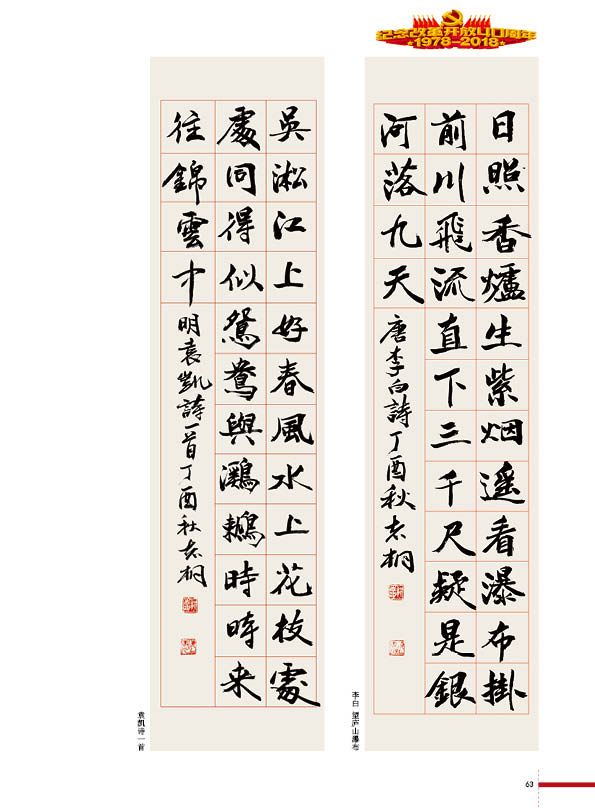 纪念改革开放40周年
1978-2018
日照香爐生紫烟遥看瀑布掛
前川飛流直下三千尺疑是銀
河落九天
唐李白詩丁酉秋桐
李白 望庐山瀑布
吳淞江上好春風水上花枝處
處同得似鴛鴦與鸂鶒時時来
往錦雲中
明袁凱詩一首丁酉秋桐
袁凯诗一首
63